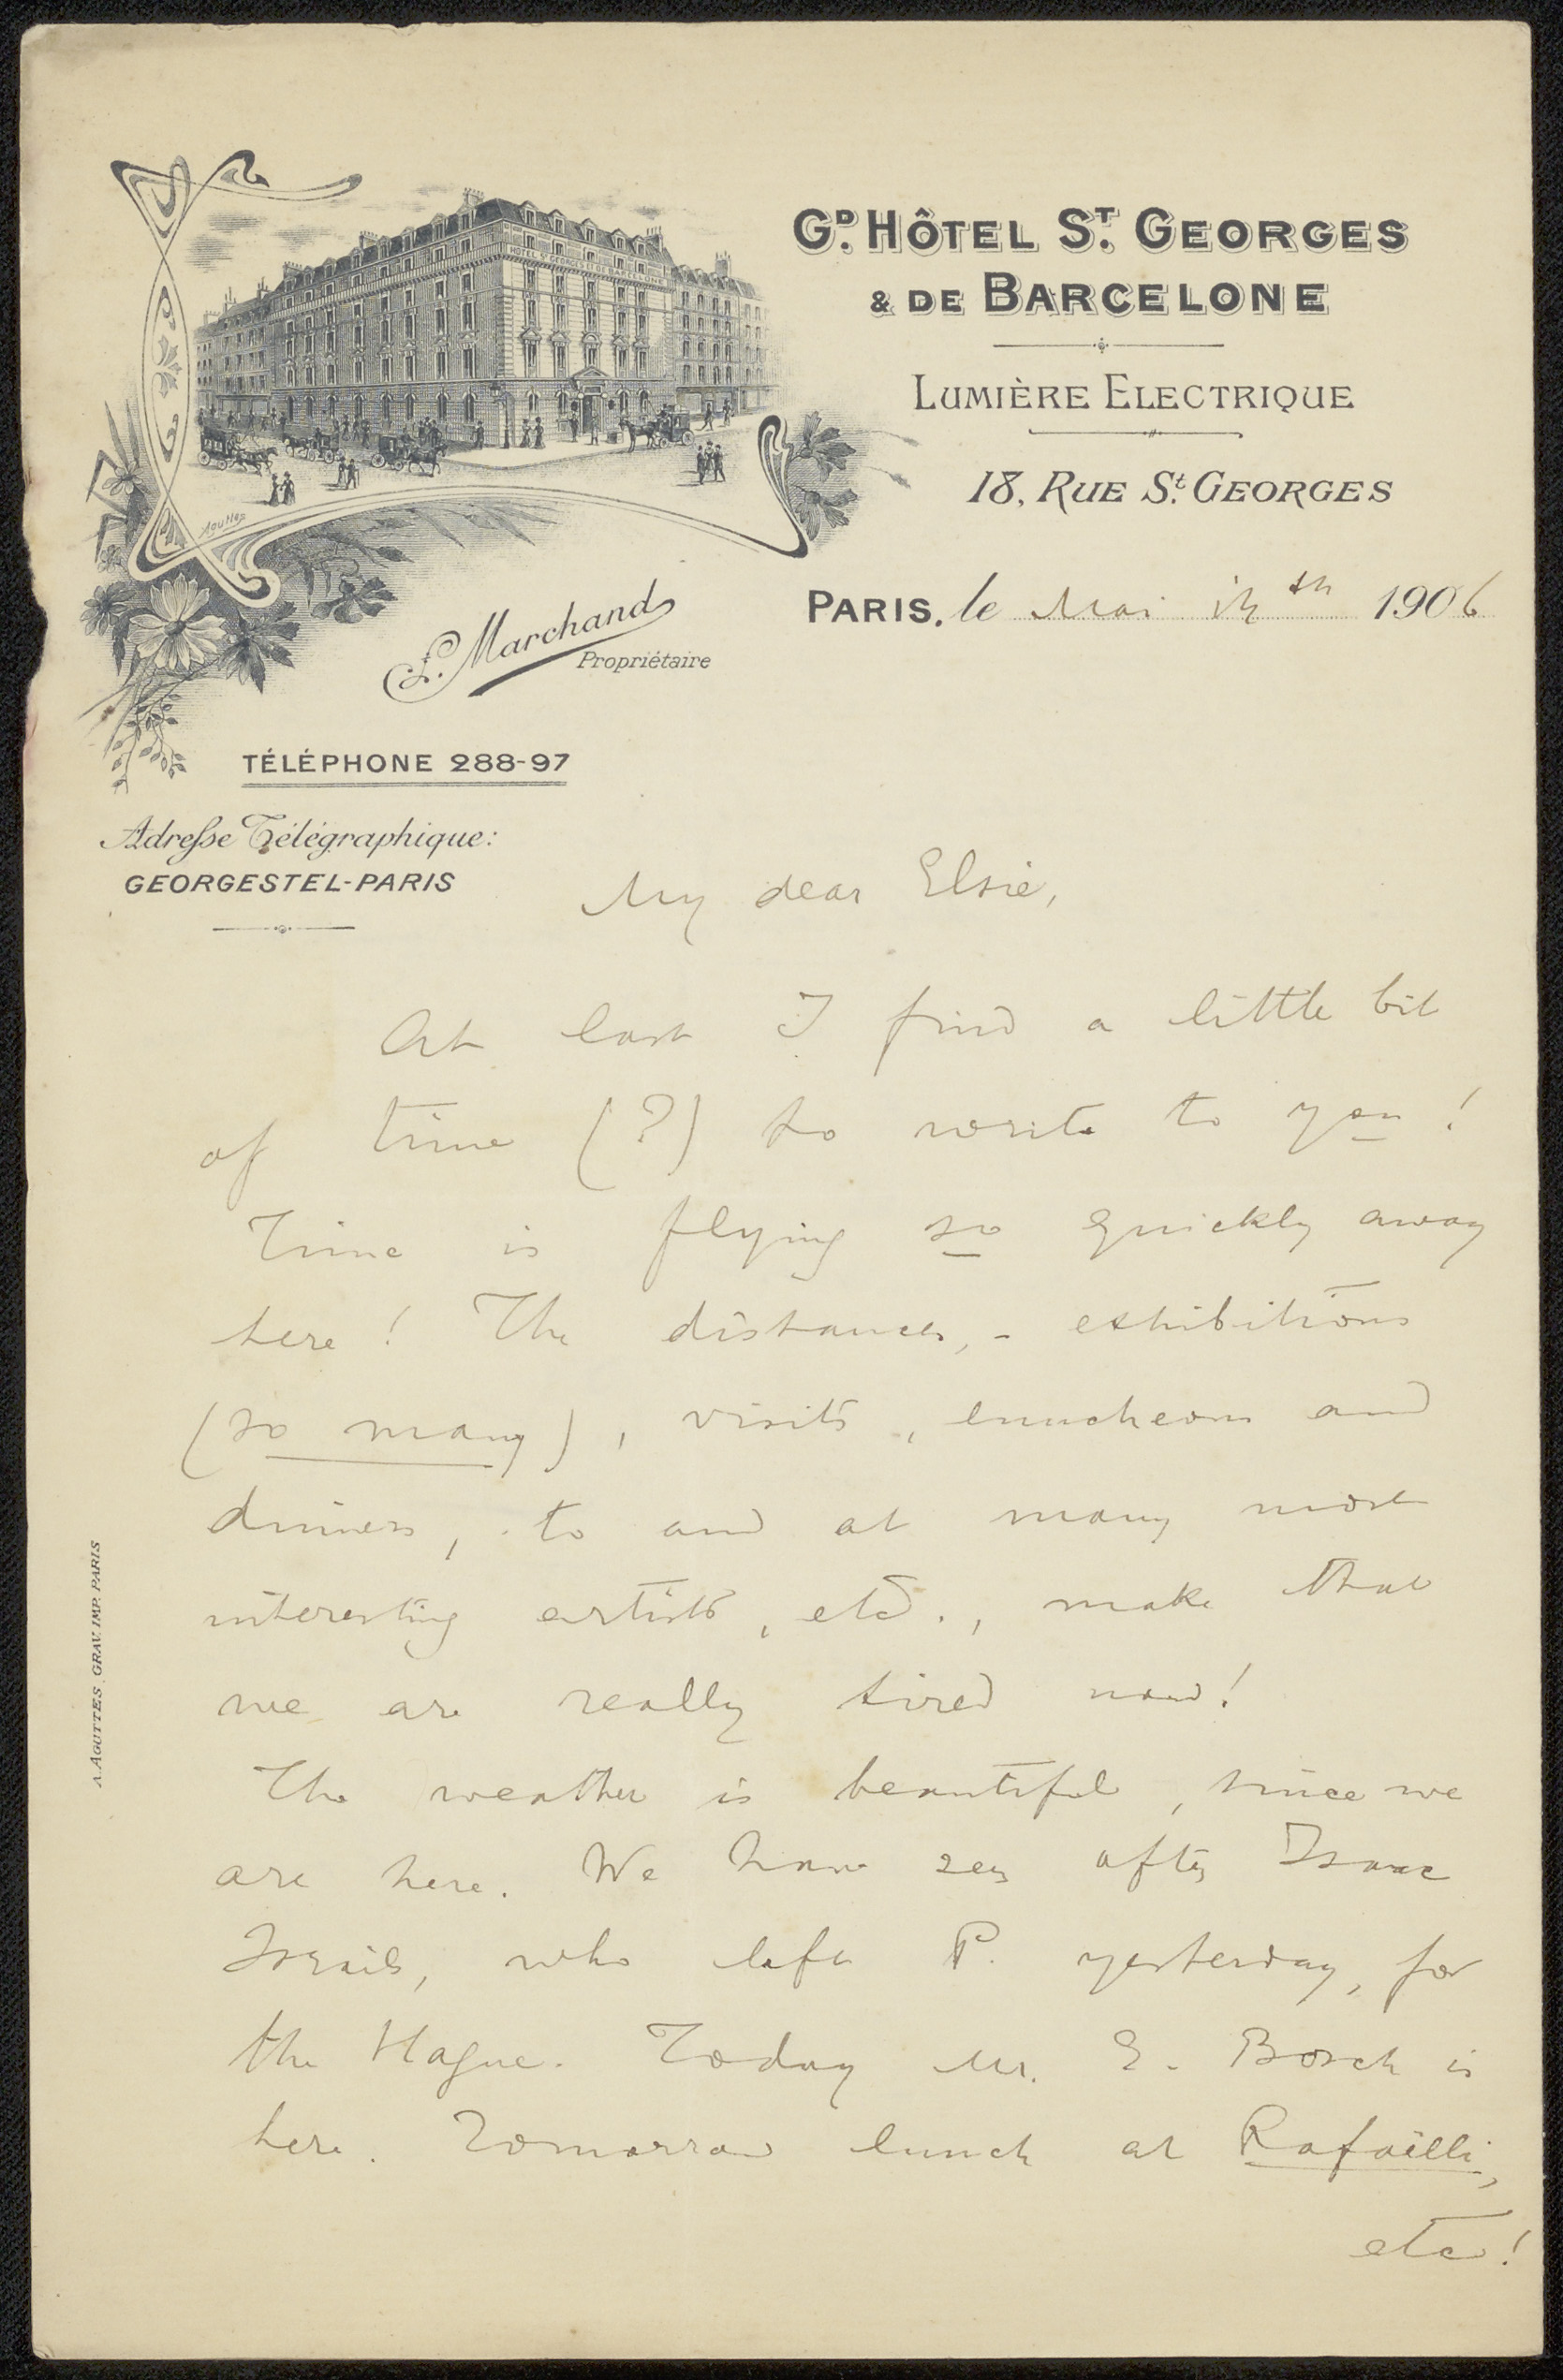 HOTEL ST GEORGES ET DE BARCELONE
Aguttes
GD. HÔTEL ST. GEORGES
& DE BARCELONE
LUMIÈRE ELECTRIQUE
18, RUE St. GEORGES
PARIS, le Mai 14th 1906
Marchand
Propriétaire
TÉLÉPHONE 288-97
Adresse Télégraphique:
GEORGESTEL-PARIS
My dear Elsie,
At last I find a little bit
of time (?) to write to you!
Time is flying so quickly away
here! The distances, - exhibitions
(so many), visits, luncheons and
dinners, to and at many most
interesting artists, etc., make that
we are really tired now!
The weather is beautiful, since we
are here. We have seen often Isaac
Israëls, who left P. yesterday, for
the Hague. Today Mr. E. Bosch is
here. Tomorrow lunch at Rafaëlli,
etc!
A. AGUTTES, GRAV. IMP. PARIS